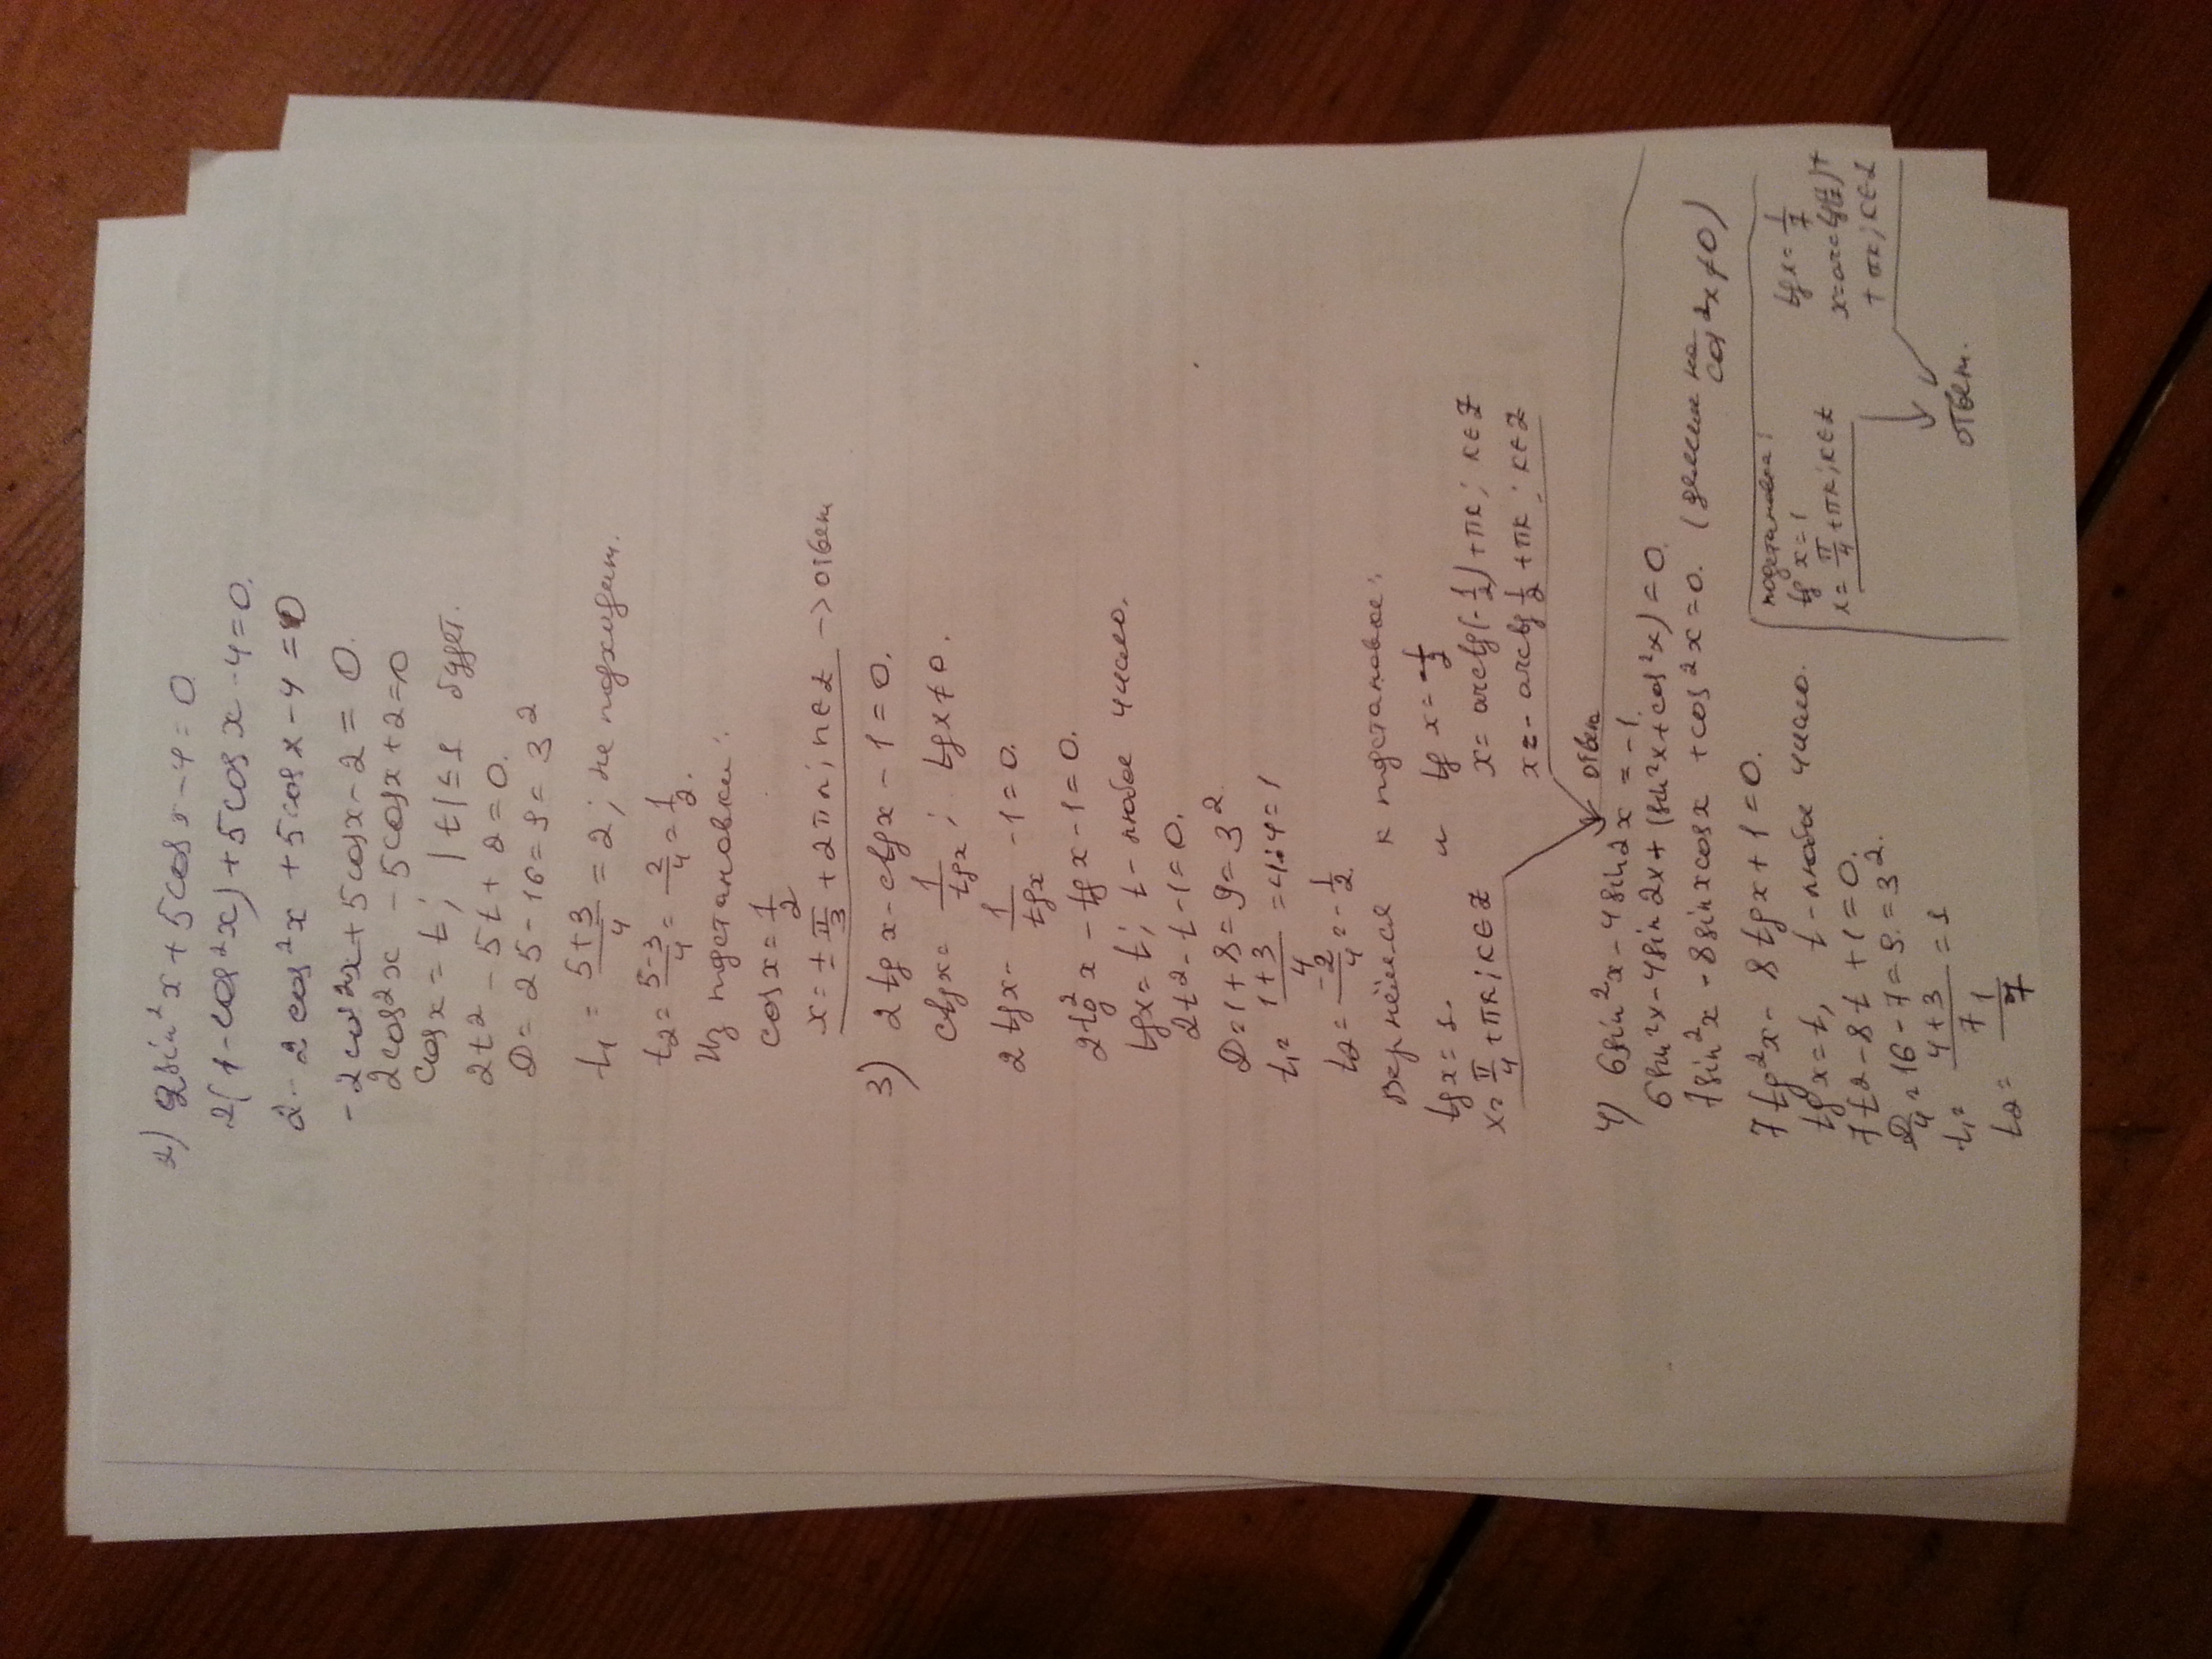 2) 2sin²x + 5cosx - 4 = 0
2(1 - cos²x) + 5cosx - 4 = 0.
2 - 2cos²x + 5cosx - 4 = 0
-2cos²x + 5cosx - 2 = 0.
2cos²x - 5cosx + 2 = 0
cosx = t; |t| ≤ 1 будет.
2t² - 5t + 2 = 0.
D = 25 - 16 = 9 = 3²
t₁ = (5+3)/4 = 2; не подходит.
t₂ = (5-3)/4 = 2/4 = 1/2.
Из подстановки:
cosx = 1/2
x = ± π/3 + 2πn; n∈Z → ответ
3) 2tgx - ctgx - 1 = 0.
ctgx = 1/tgx; tgx ≠ 0.
2tgx - 1/tgx - 1 = 0.
2tg²x - tgx - 1 = 0.
tgx = t; t - любое число.
2t² - t - 1 = 0.
D = 1 + 8 = 9 = 3²
t₁ = (1+3)/4 = 4:4 = 1
t₂ = -2/4 = -1/2
Вернёмся к подстановке:
tgx = 1. и tgx = -1/2
x = π/4 + πk; k∈Z
x = arctg(-1/2) + πk; k∈Z
x = -arctg 1/2 + πk; k∈Z
ответ
4) 6sin²x - 4sin2x = -1.
6sin²x - 4sin2x + (sin²x + cos²x) = 0.
7sin²x - 8sinxcosx + cos²x = 0. (делим на cos²x ≠ 0)
7tg²x - 8tgx + 1 = 0.
tgx = t, t - любое число.
7t² - 8t + 1 = 0.
D/4 = 16 - 7 = 9 = 3².
t₁ = (4+3)/7 = 1
t₂ = 1/7
подстановка:
tgx = 1
x = π/4 + πk; k∈Z
tgx = 1/7
x = arctg(1/7) +
+ πk; k∈Z
ответ.